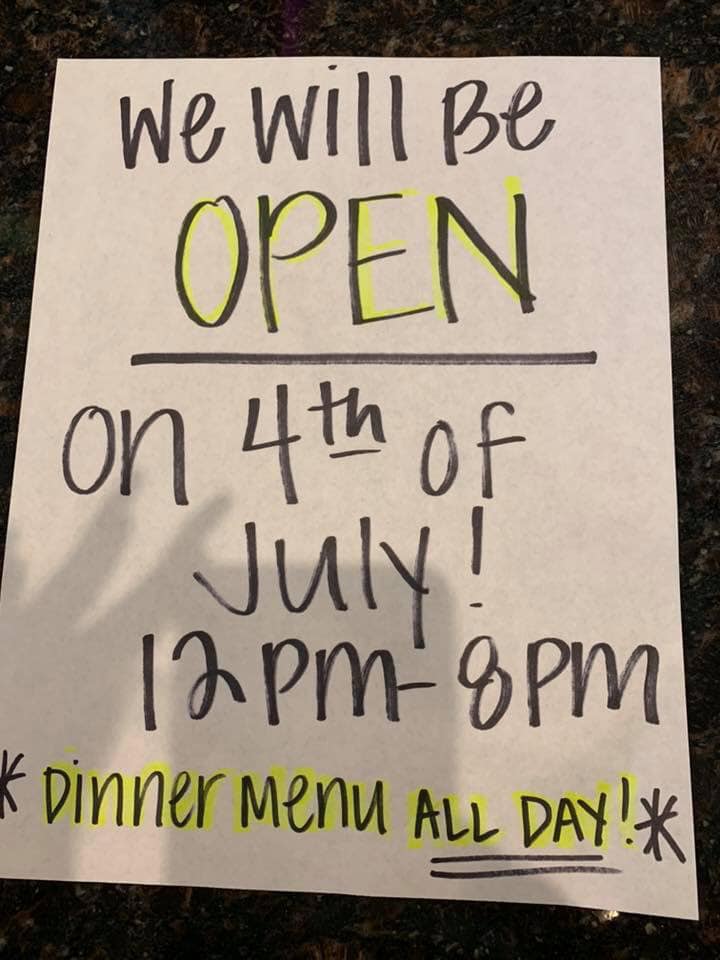 We Will Be
OPEN
on 4th of
July!
12pm-8pm
* Dinner Menu ALL DAY! *